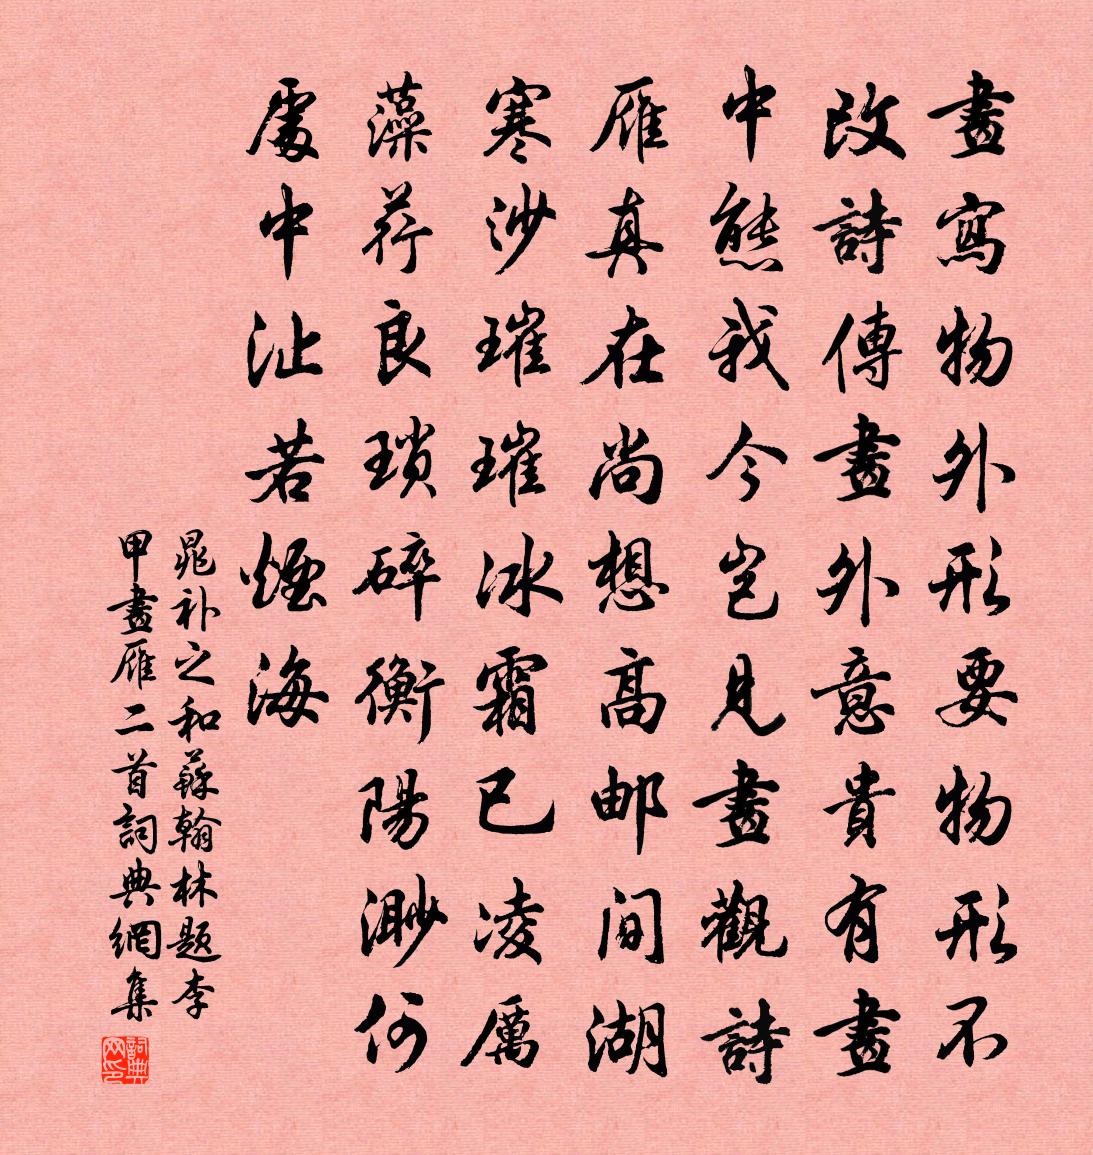 畫寫物外形要物形不
改詩傳畫外意貴有畫
中態我今豈見畫觀詩
雁真在尚想高邮间湖
寒沙璀璀冰霜已凌厲
藻荇良瑣碎衡陽渺何
處中沚若煙海
晁补之和蘇翰林題李
甲畫雁二首詞典網集
詞典网印